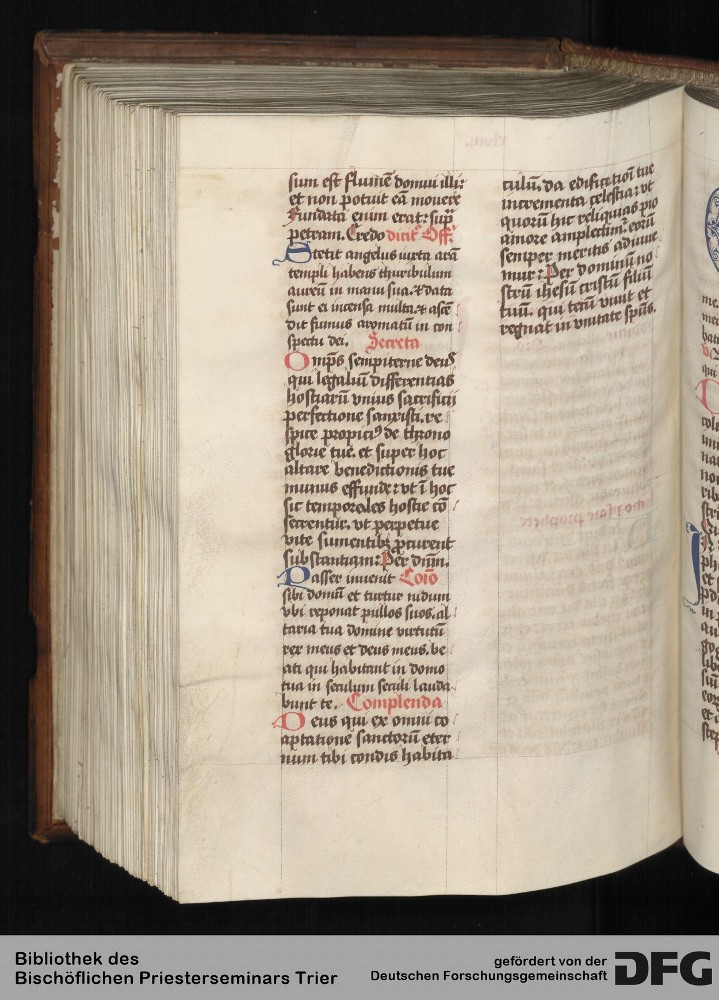 sum est flumē domui illi:
et non potuit eā mouere
Fundata enim erat: sup̄
petram. Credo dicit᷑ Off᷑
Stetit angelus iuxta arā
templi habens thuribulum
aureū in manu sua. ⁊ data
sunt ei incensa multa. ⁊ ascē
dit fumus aromatū in con
spectu dei. Secreta
Omp̄s sempiterne deus
qui legaliū differentias
hostiarū vnius sacrificij
perfectione sanxisti. re
spice propiciꝰ de throno
glorie tue. et super hoc
altare benedictionis tue
munus effunde: vt ī hoc
sic temporales hostie cō
secrentur. vt perpetue
vite sumentibꝫ ꝓcurent
substantiam: Per dn̄m.
Passer inuenit Coīo
sibi domū et turtur nidum
vbi reponat pullos suos. al
taria tua domine virtutū
rex meus et deus meus. be
ati qui habitant in domo
tua in seculum seculi lauda
bunt te. Complenda
Deus qui ex omni co
aptatione sanctorū eter
num tibi condis habita
culū. da edificatiōī tue
incrementa celestia: vt
quorū hic reliquias pio
amore amplectim᷑. eorū
semper meritis adiuue
mur: Per dominū no
strū ihesū cristū filiū
tuū. qui tecū viuit et
regnat in vnitate sp̄us.
Bibliothek des
Bischöflichen Priesterseminars Trier
gefördert von der
Deutschen Forschungsgemeinschaft
DFG